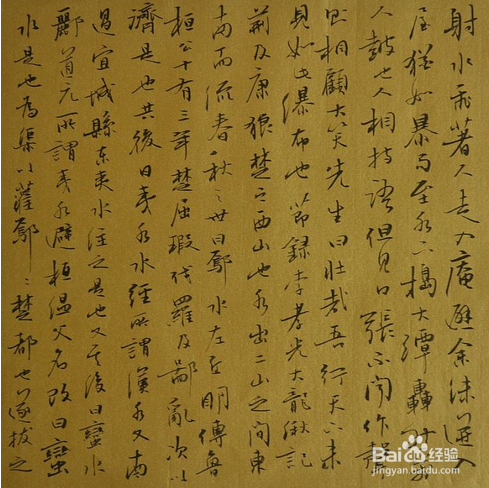 射水飛著人走入庵避余沫迸入
屋犹如暴雨至水下搗大潭轟然万
人鼓也人相持語但見口張不聞作聲
則相顧大笑先生曰壯哉吾行天下未
見如此瀑布也節錄李孝光大龍湫記
荊及康狼楚之西山也水出二山之間東
南而流春秋之世曰鄢水左丘明傳魯
桓公十有三年楚屈瑕伐羅及鄢亂次以
濟是也其後曰夷水水經所謂漢水又南
過宜城縣東夷水注之是也又其後曰蠻水
酈道元所謂夷水避桓溫父名改曰蠻
水是也為渠以灌鄢〻楚都也遂拔之
Bai度经验
jingyan.baidu.com